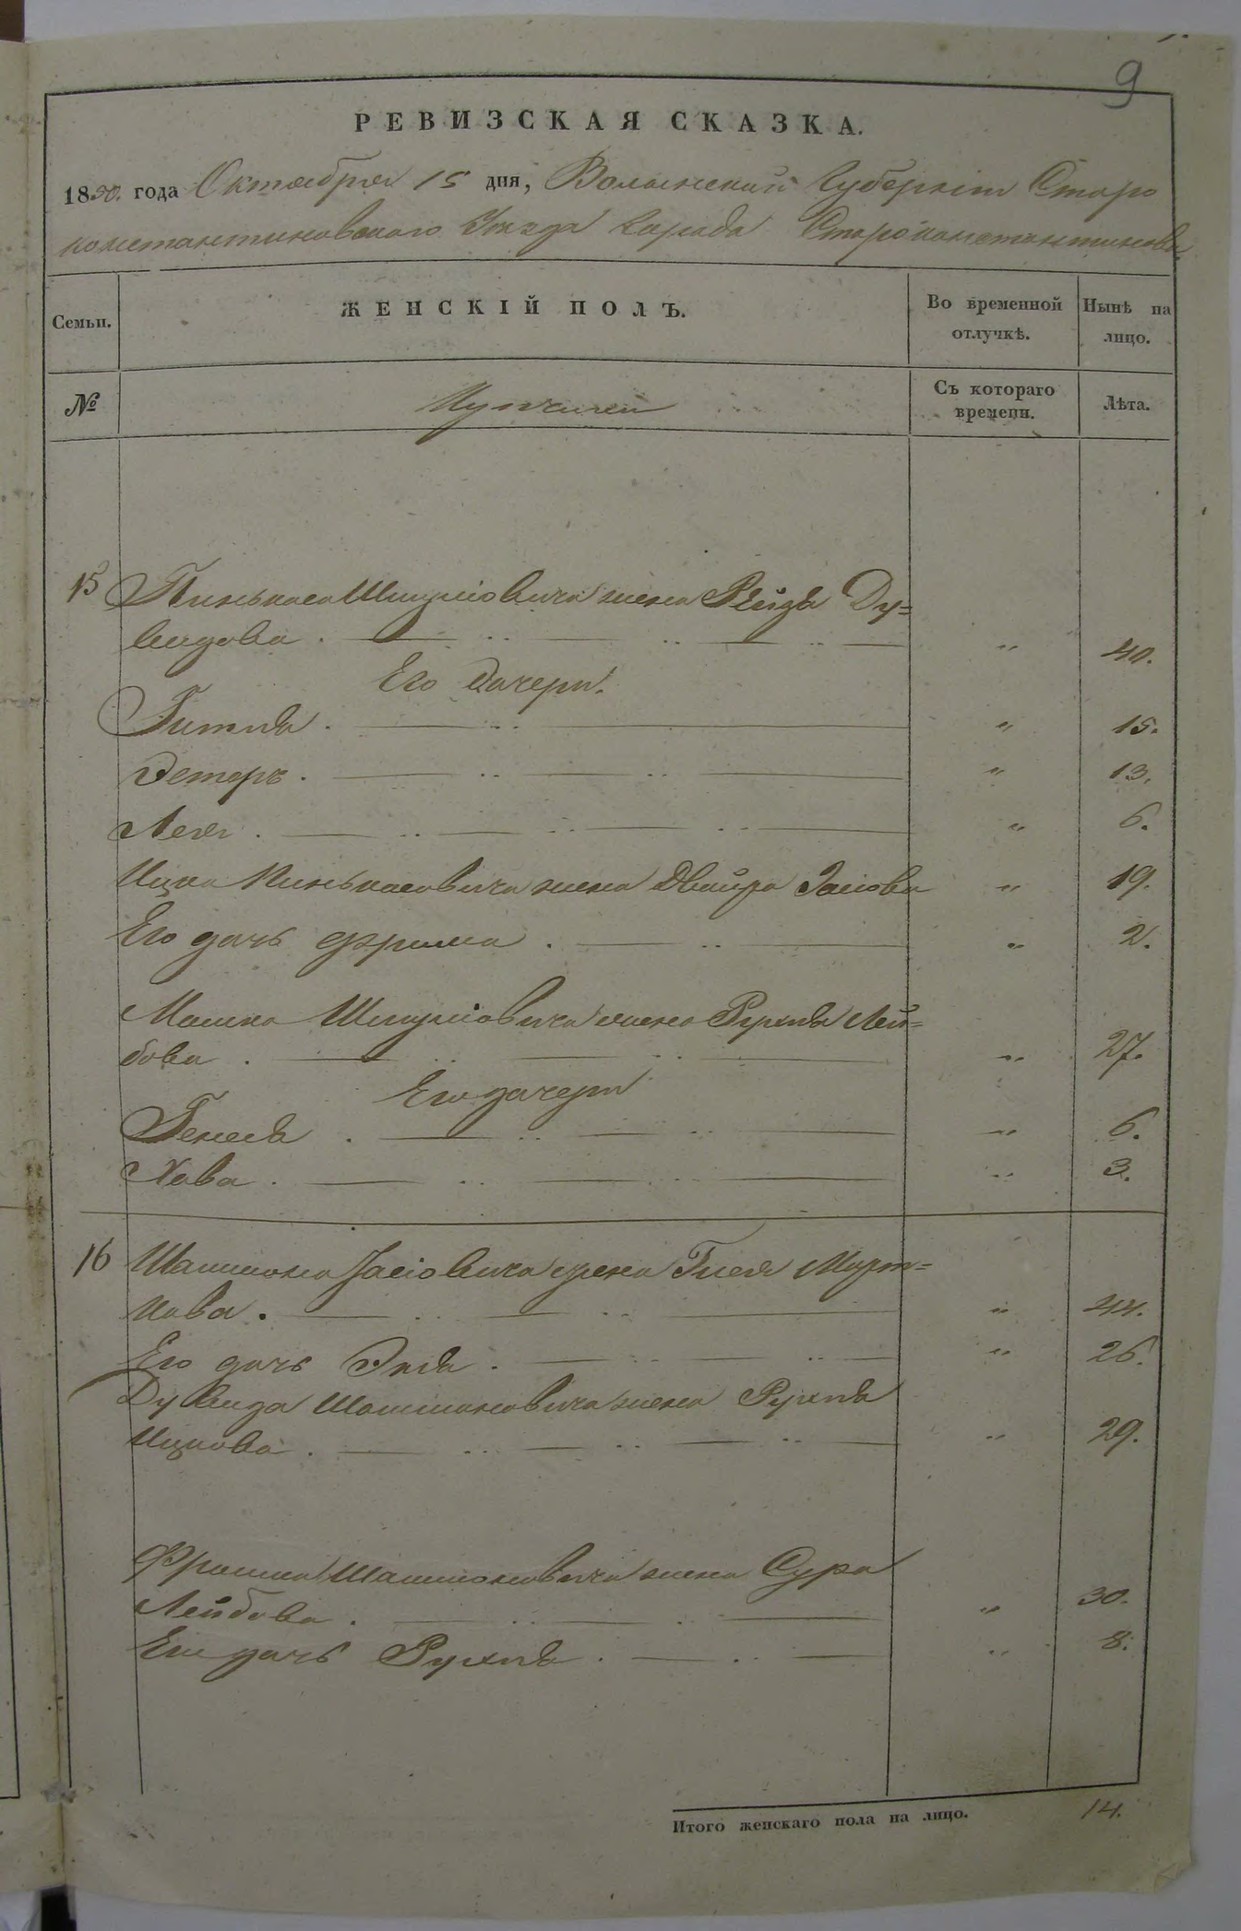 9
РЕВИЗСКАЯ СКАЗКА.
1850. года Октября 15 дня, Волынской Губерніи Старо
константиновского Уезда Города Староконстантинова
Семьи. ЖЕНСКІЙ ПОЛЪ. Во временной отлучкѣ. Нынѣ на лицо.
№ Съ котораго времени. Лѣта.
15 Пинькаса Шмуліовича жена Рейзя Ду=
видова . " 40.
Его Дочери.
Гитля . " 15.
Эстеръ . " 13.
Лея . " 6.
Ицка Пинькасовича жена Двойра Іосіова " 19.
Его дочь Фрима . " 2.
Мошка Шмуліовича жена Рухля Лей=
бова . " 27.
Его дочери
Генеся . " 6.
Хава . " 3.
16 Шлиома Іосіовича жена Март=
кова . " 44.
Его дочь Эпя . " 26.
Дувида жена Рухля
Ицкова . " 29.
Фроима жена Сура
Лейбова . " 30.
Его дочь Рухля . " 8.
Итого женскаго пола на лицо. 14.